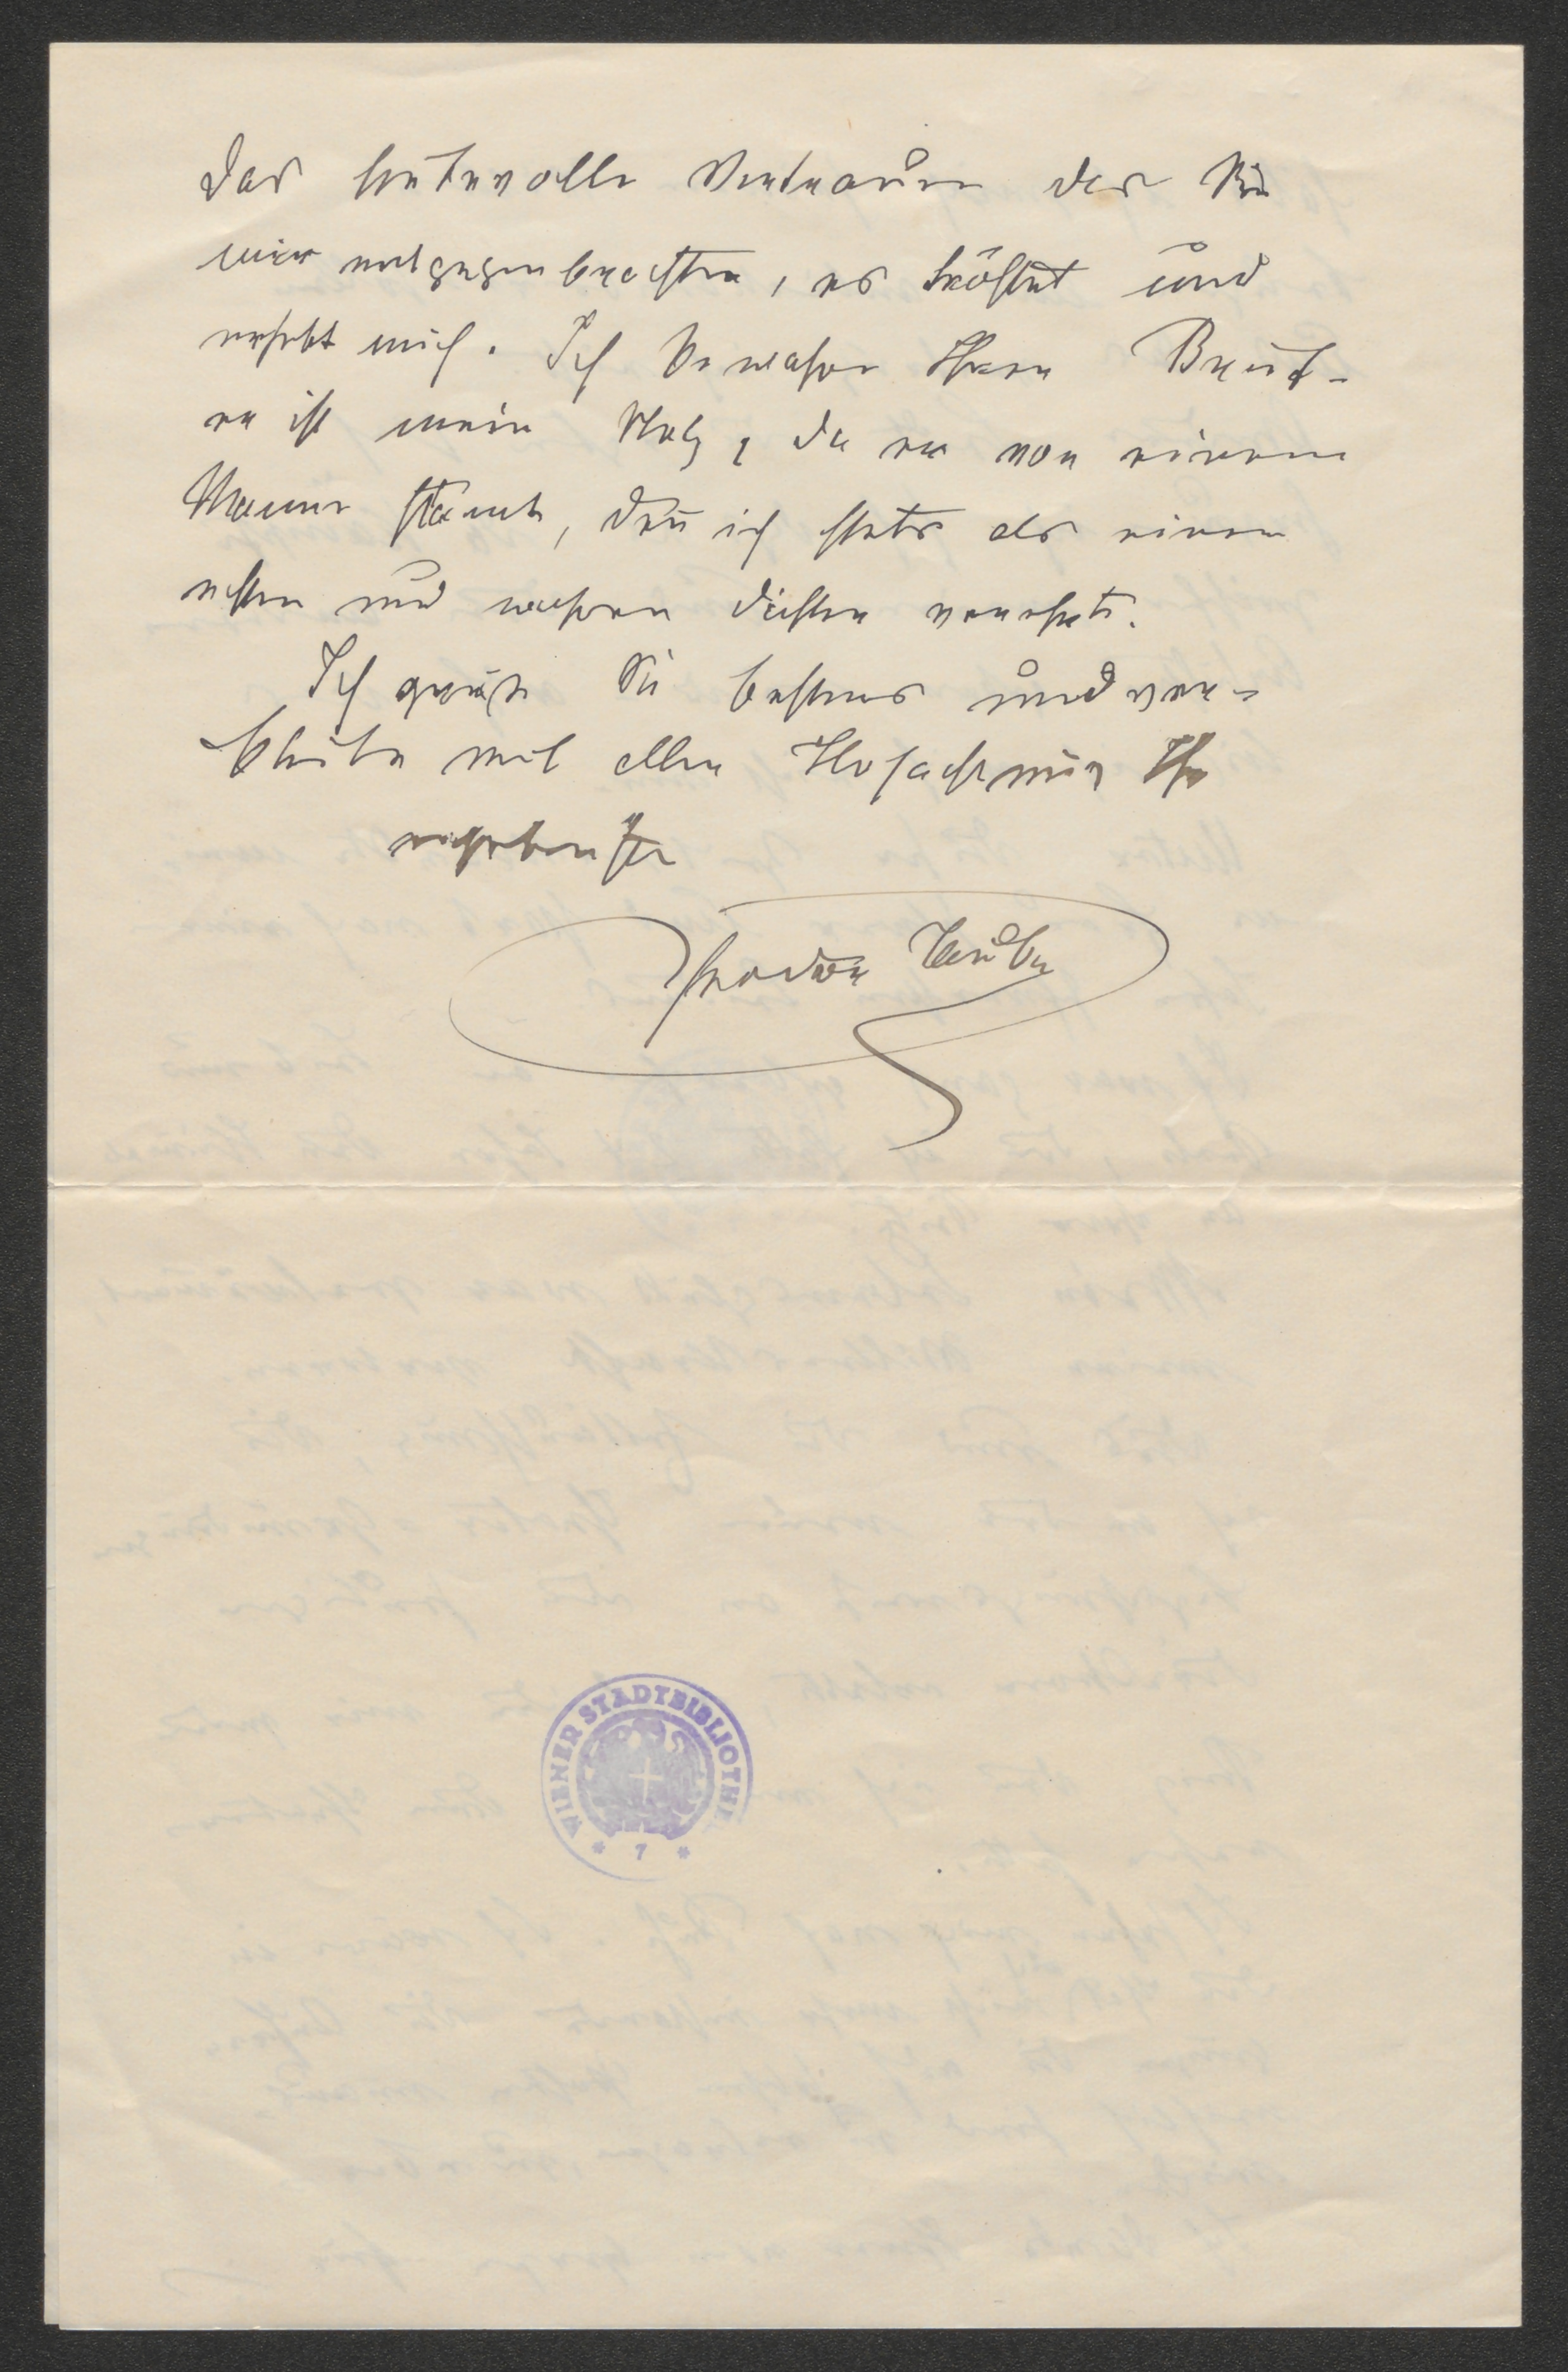 das huldvolle Vertrauen das Sie
mir entgegenbrachten, es tröstet und
erhebt mich. Ich bewahre Ihren Brief -
er ist mein Stolz, da er von einem
Manne stamt, den ich stets als einen
echten und wahren Dichter verehrte.
Ich grüße Sie bestens und ver-
bleibe mit aller Hochachtung Ihr
ergebenster
Theodor Taube
WIENER STADTBIBLIOTHE
* 7 *